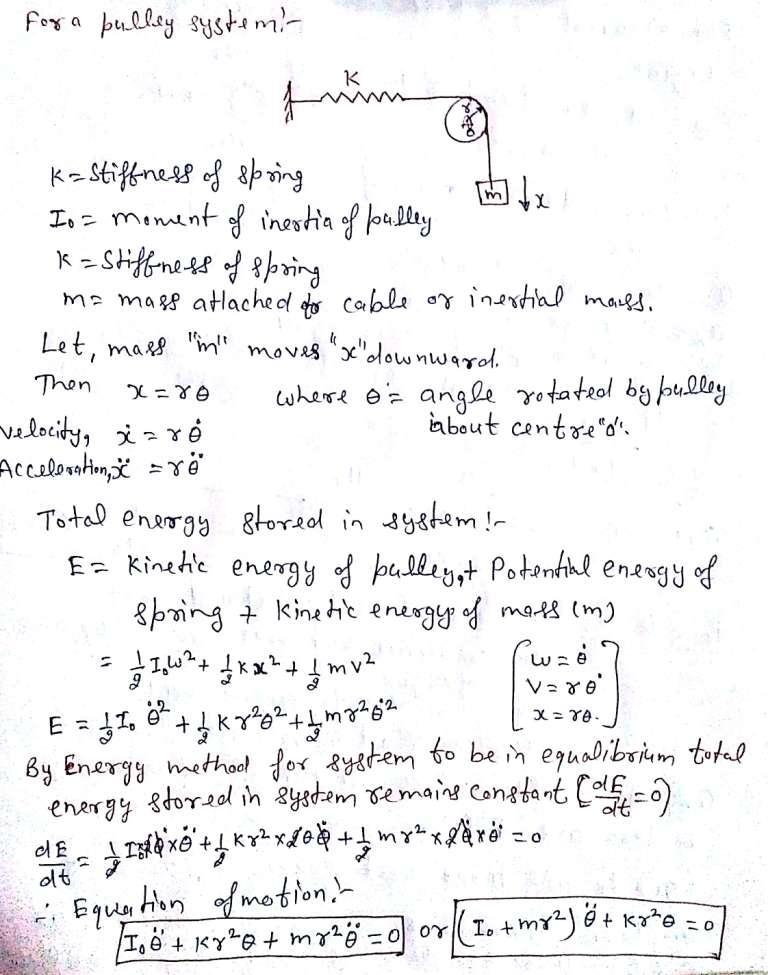 For a pulley system:-
K
r
θ
m ↓x
K = Stiffness of spring
I₀ = moment of inertia of pulley
K = Stiffness of spring
m = mass attached to cable or inertial mass.
Let, mass "m" moves "x" downward.
Then x = rθ where θ = angle rotated by pulley
about centre "o".
velocity, ẋ = rθ̇
Acceleration, ẍ = rθ̈
Total energy stored in system :-
E = Kinetic energy of pulley + Potential energy of
spring + Kinetic energy of mass (m)
= 1/2 I₀ω² + 1/2 Kx² + 1/2 mv²
[ω = θ̇
V = rθ̇
x = rθ.]
E = 1/2 I₀ θ̇² + 1/2 K r²θ² + 1/2 m r²θ̇²
By Energy method for system to be in equalibrium total
energy stored in system remains constant (dE/dt = 0)
dE/dt = 1/2 I₀ 2θ̇ × θ̈ + 1/2 Kr² × 2θθ̇ + 1/2 mr² × 2θ̇ × θ̈ = 0
∴ Equation of motion :-
I₀θ̈ + Kr²θ + mr²θ̈ = 0 or (I₀ + mr²) θ̈ + Kr²θ = 0